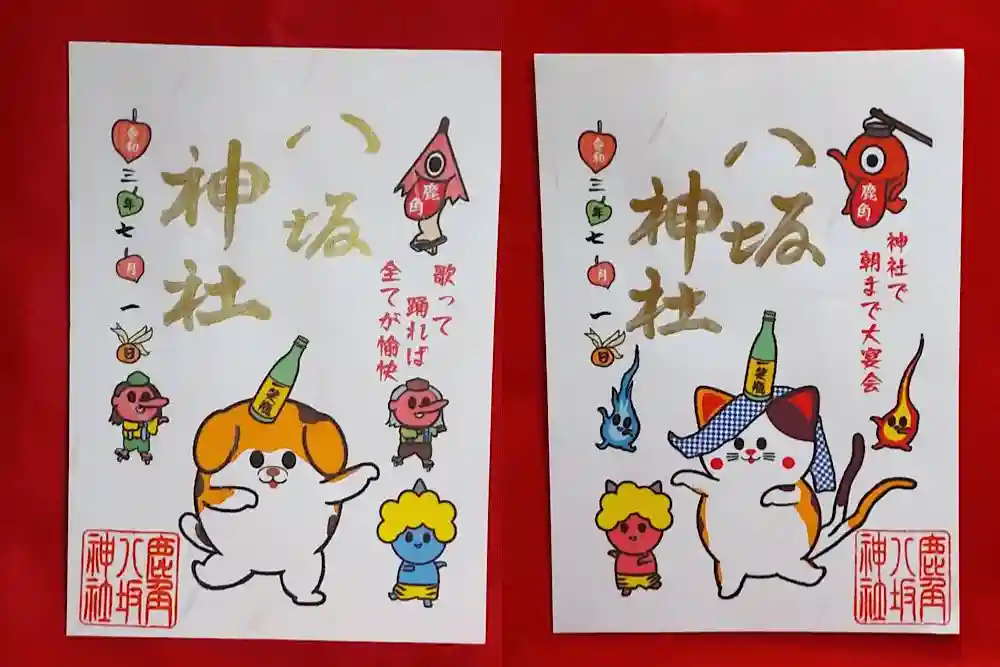 鹿角
八坂
神社
歌って
踊れば
全てが愉快
令和三年七月一日
一笑瓶
鹿角
八坂
神社
鹿角
八坂
神社
神社で
朝まで大宴会
令和三年七月一日
鹿角
八坂
神社